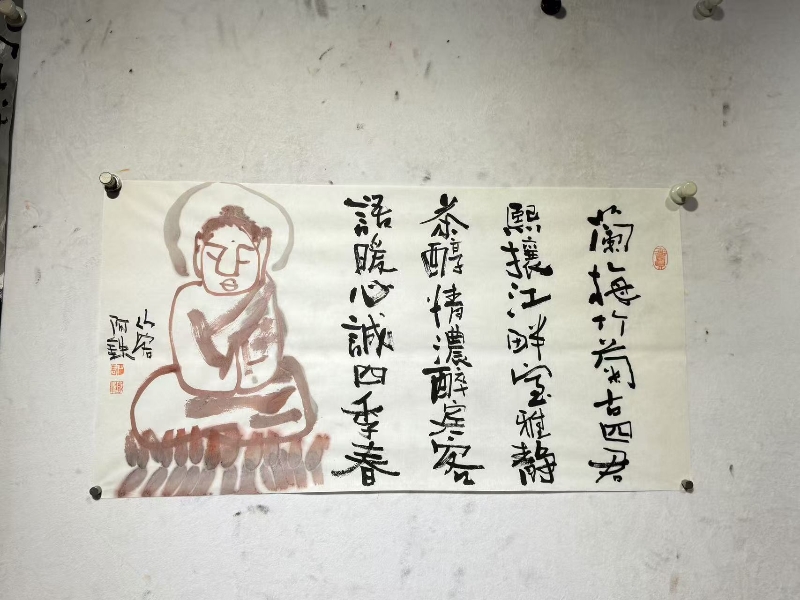 蘭梅竹菊古四君
熙攘江畔室雅靜
茶醇情濃醉宾客
語暖心誠四季春
阿鉄